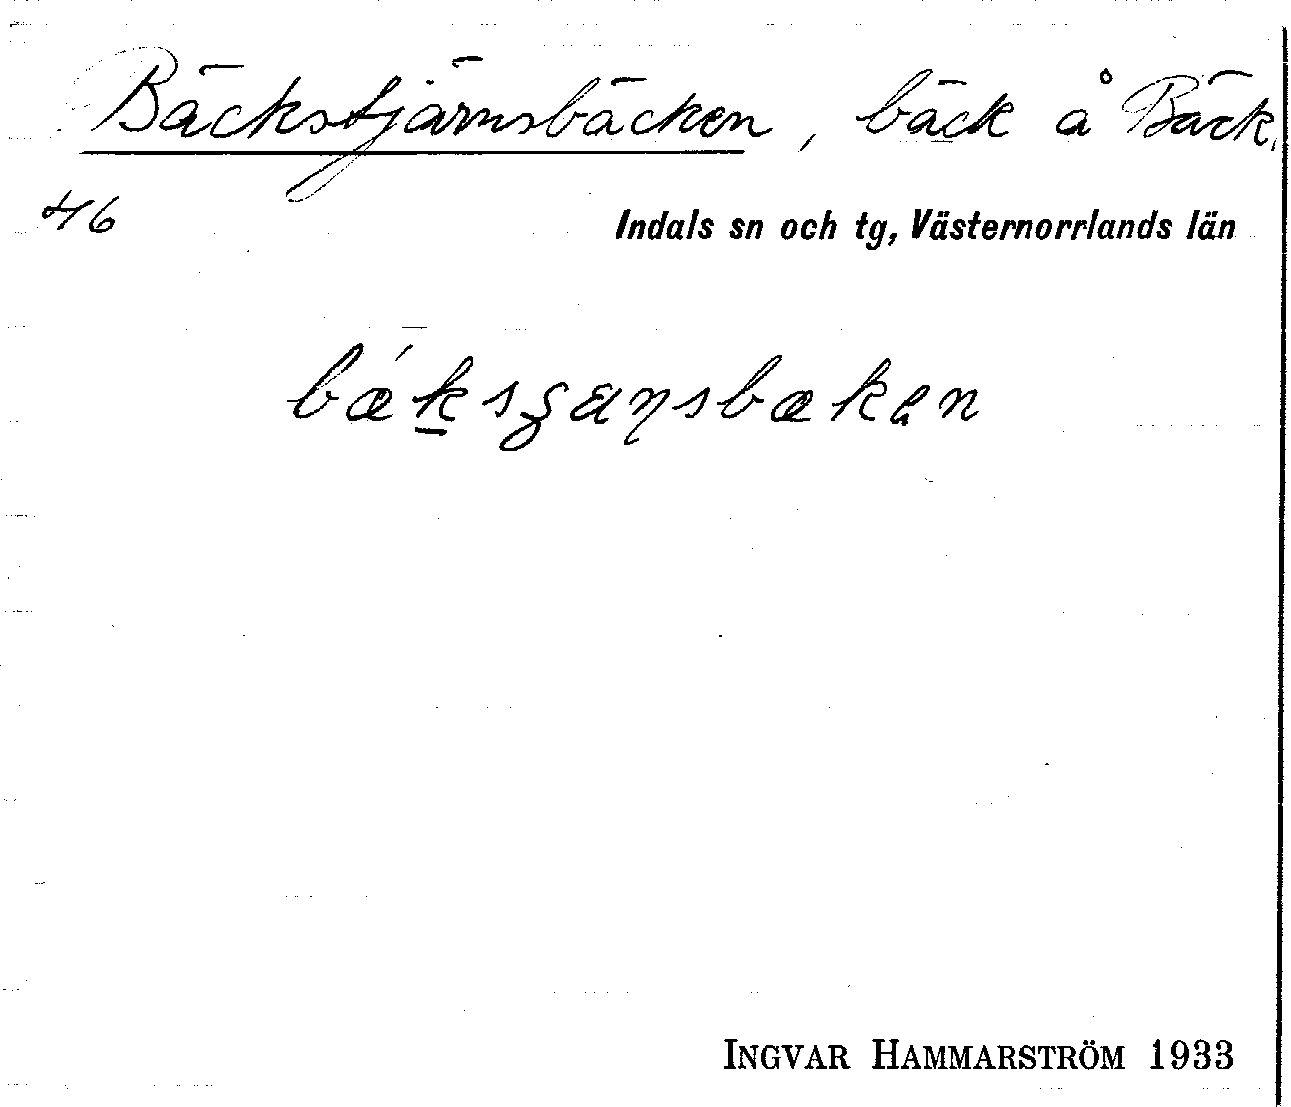 Bäckstjärnsbäcken, bäck å Bäck.
46
Indals sn och tg, Västernorrlands län
INGVAR HAMMARSTRÖM 1933